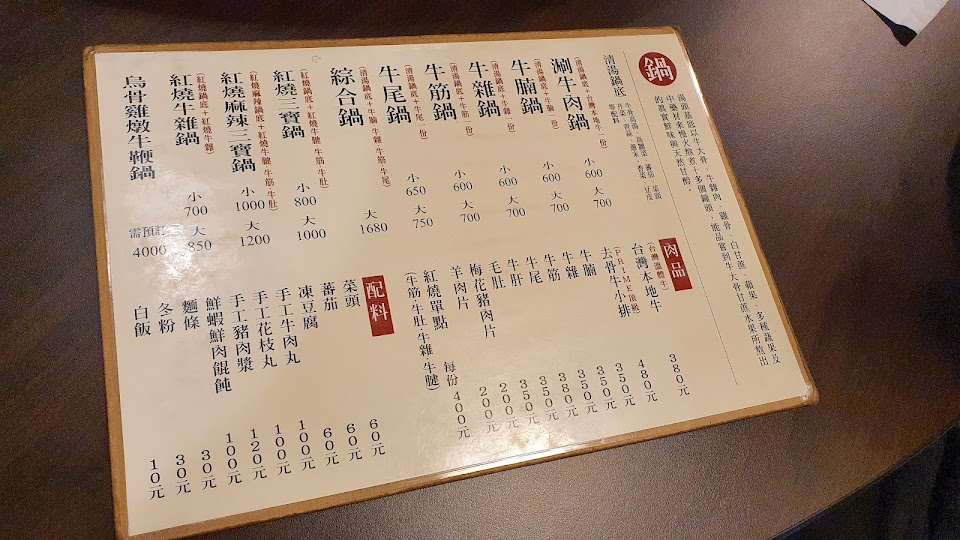 鍋
湯頭基底以牛大骨、牛雜肉、雞骨、白甘蔗、蘋果、多種蔬果及
中藥材來慢火熬煮十多個鐘頭，能品嘗到牛大骨甘蔗水果所熬出
的真實鮮味與天然甘醇。
清湯鍋底
等配料
涮牛肉鍋
(清湯鍋底+台灣本地牛一份)
小 600
大 700
牛腩鍋
(清湯鍋底+牛腩一份)
小 600
大 700
牛雜鍋
(清湯鍋底+牛雜一份)
小 600
大 700
牛筋鍋
(清湯鍋底+牛筋一份)
小 600
大 700
牛尾鍋
(清湯鍋底+牛尾一份)
小 650
大 750
綜合鍋
(清湯鍋底+牛腩 牛雜 牛筋 牛尾)
大 1680
紅燒三寶鍋
(紅燒鍋底+紅燒牛腱 牛筋 牛肚)
小 800
大 1000
紅燒麻辣三寶鍋
(紅燒麻辣鍋底+紅燒牛腱 牛筋 牛肚)
小 1000
大 1200
紅燒牛雜鍋
(紅燒鍋底+紅燒牛雜)
小 700
大 850
烏骨雞燉牛鞭鍋
需預訂
4000
肉品
台灣本地牛
(台灣溫體牛)
380元
去骨牛小排
(PRIME頂級)
480元
牛腩 350元
牛雜 350元
牛筋 350元
牛尾 380元
牛肝 350元
毛肚 350元
梅花豬肉片 200元
羊肉片 200元
紅燒單點 每份 400元
(牛筋 牛肚 牛雜 牛腱)
配料
菜頭 60元
蕃茄 60元
凍豆腐 60元
手工牛肉丸 100元
手工花枝丸 100元
手工豬肉漿 120元
鮮蝦鮮肉餛飩 100元
麵條 30元
冬粉 30元
白飯 10元